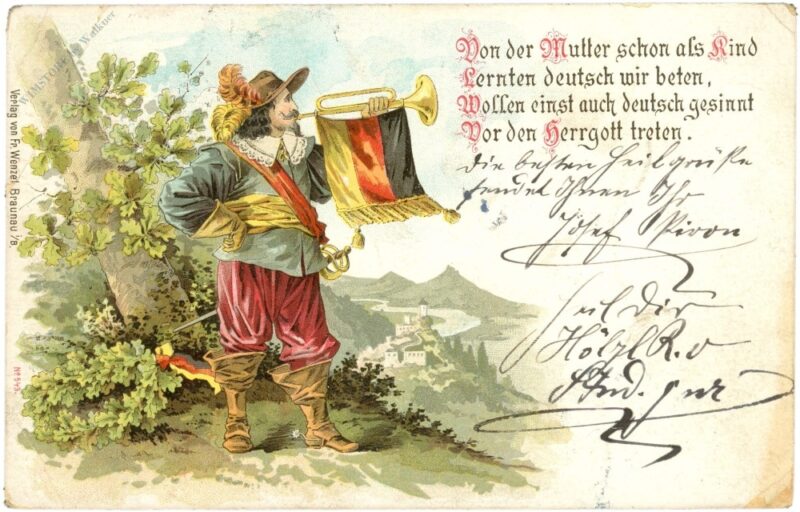 Von der Mutter schon als Kind
Lernten deutsch wir beten,
Wollen einst auch deutsch gesinnt
Vor den Herrgott treten.
Die besten Heilgrüße
sendet Ihnen Ihr
Josef Piron
Heil Dir
Hölzl R. v
Stud.
Verlag von Fr. Wenzel, Braunau i/B.